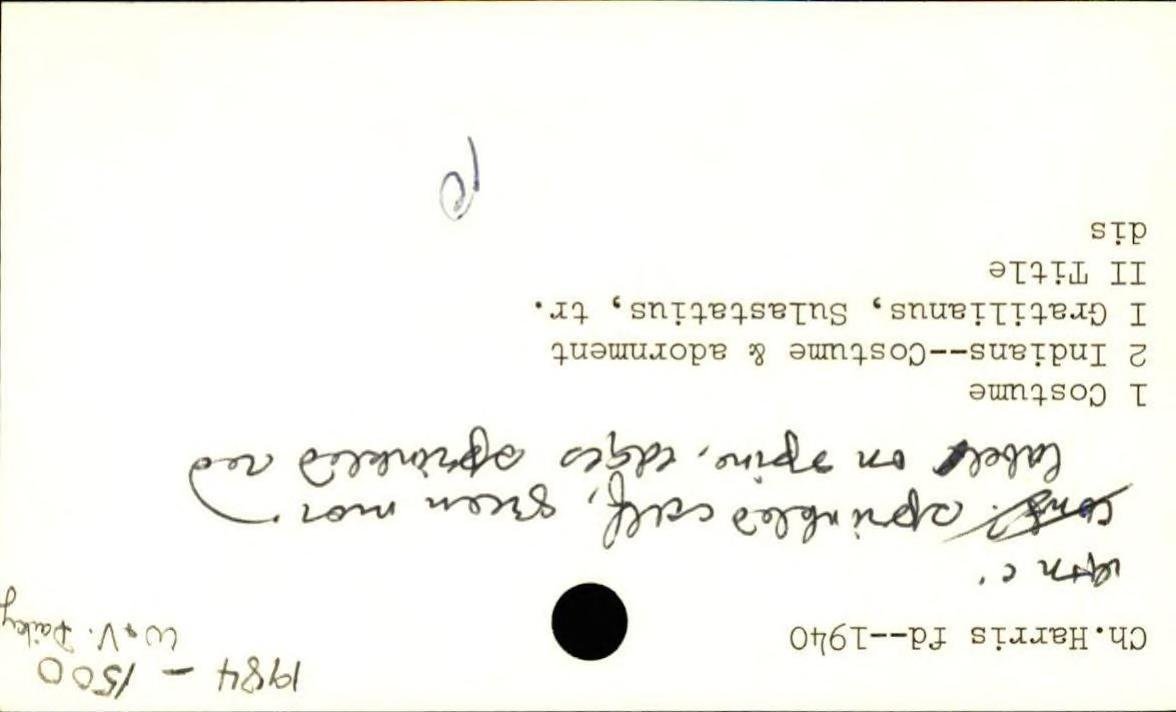 1984 - 1500
W & V. Dailey
Ch.Harris fd--1940
18th c.
cont. sprinkled calf, green mor.
label on spine, edges sprinkled red
1 Costume
2 Indians--Costume & adornment
I Gratilianus, Sulastatius, tr.
II Title
dis